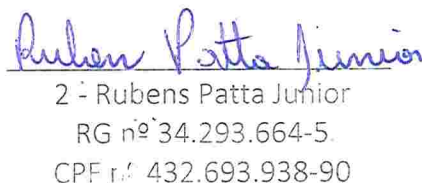 Ruben Patta Junior
2 - Rubens Patta Junior
RG nº 34.293.664-5
CPF nº 432.693.938-90